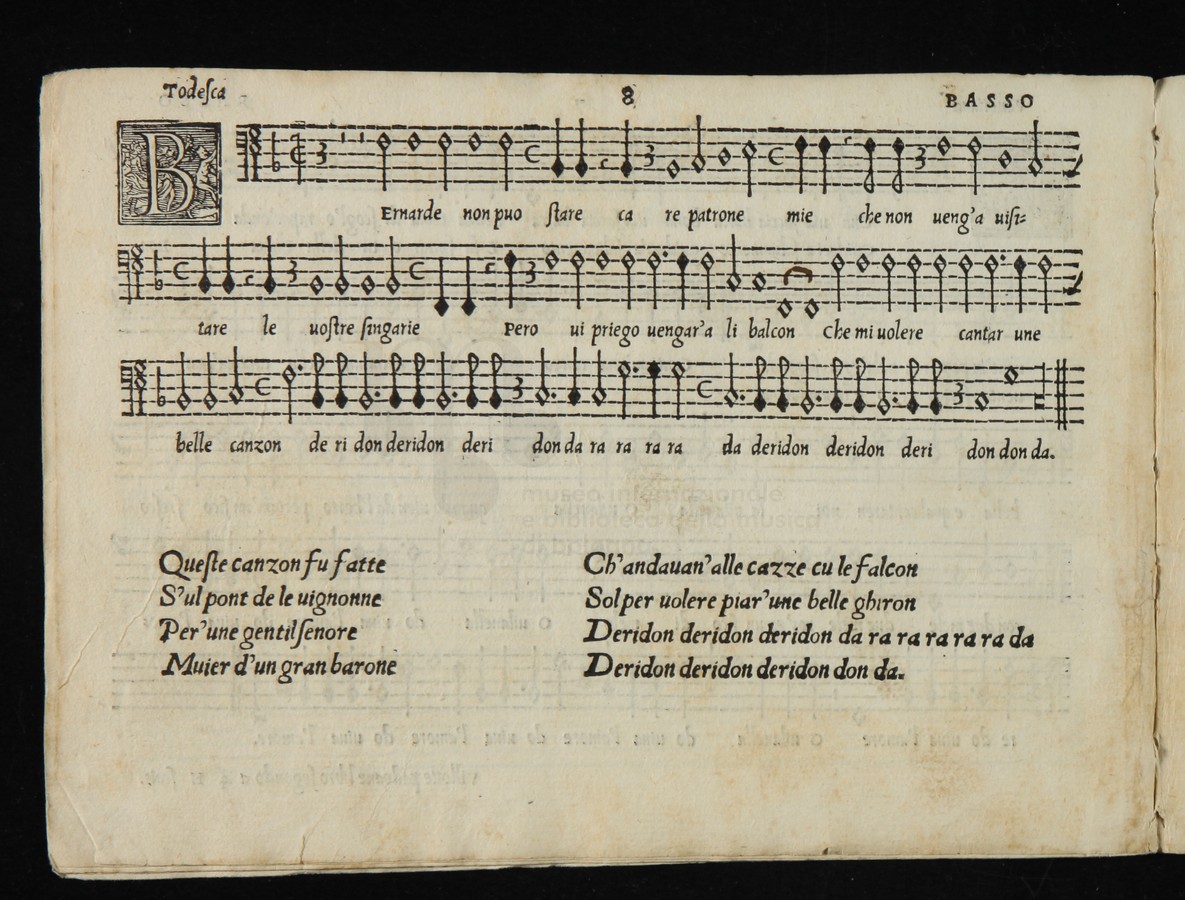 Todeſca
8
BASSO
BErnarde non puo ſtare ca re patrone mie che non ueng'a uiſi-
tare le uoſtre ſingarie Pero ui priego uengar'a li balcon Che mi uolere cantar une
belle canzon de ri don deridon deri don da ra ra ra ra da deridon deridon deri don don da.
museo internazionale
e biblioteca della musica
di bologna
Queſte canzon fu fatte
S'ul pont de le uignonne
Per'une gentil ſenore
Muier d'un gran barone
Ch'andauan'alle cazze cu le falcon
Sol per uolere piar'une belle ghiron
Deridon deridon deridon da ra ra ra ra ra da
Deridon deridon deridon don da.